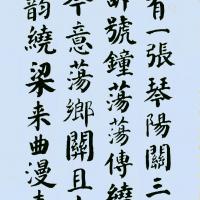 有一張琴陽關三
號鐘蕩蕩傳繞
今意蕩鄉關且
韵繞梁来曲漫